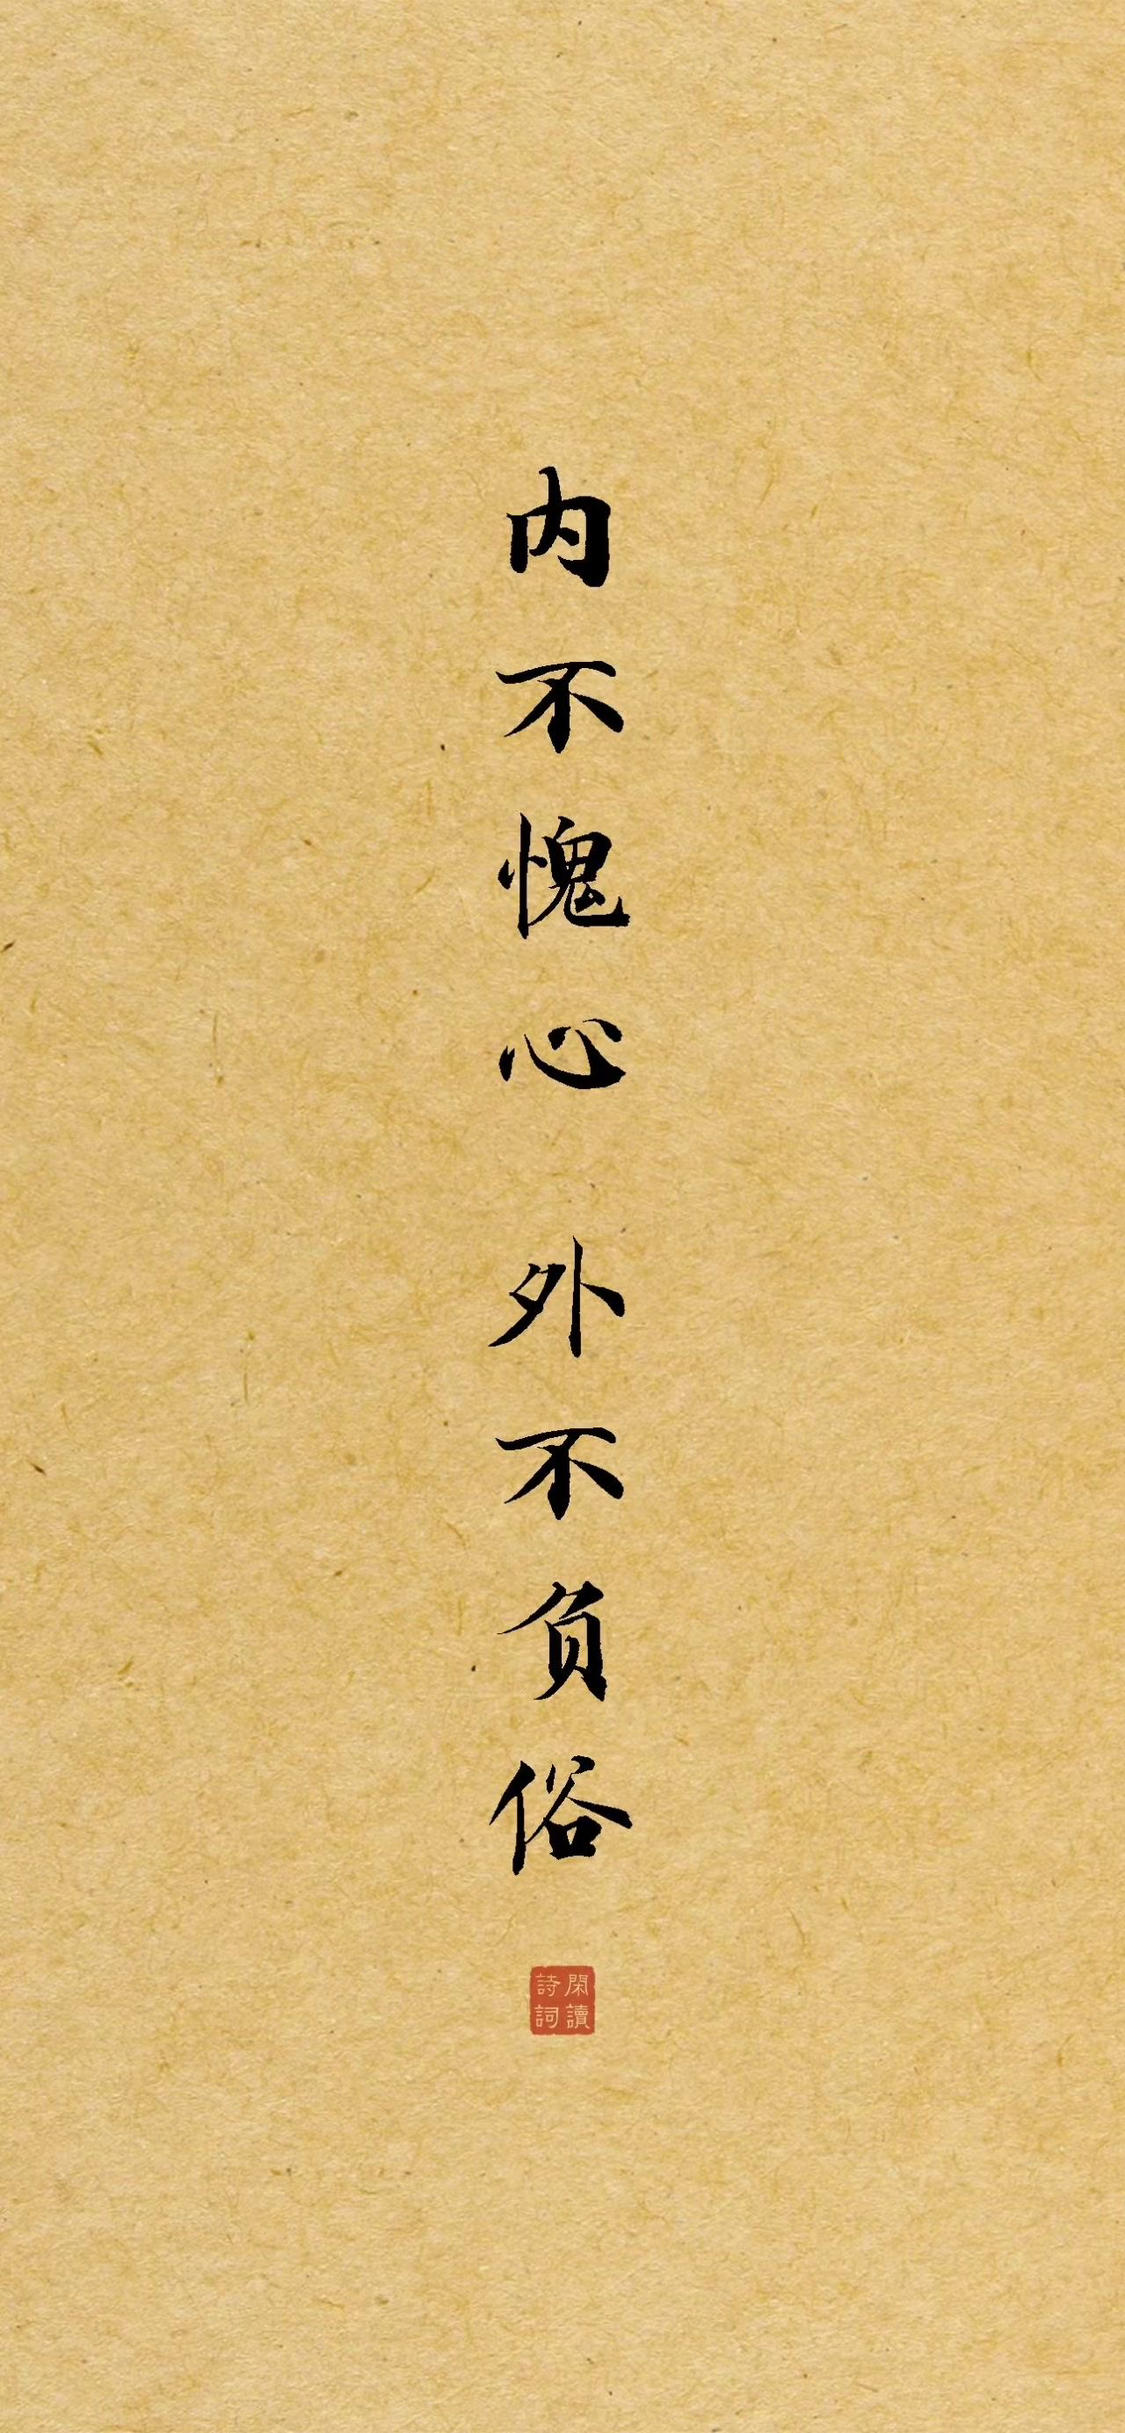 内不愧心 外不负俗
閑讀
詩詞